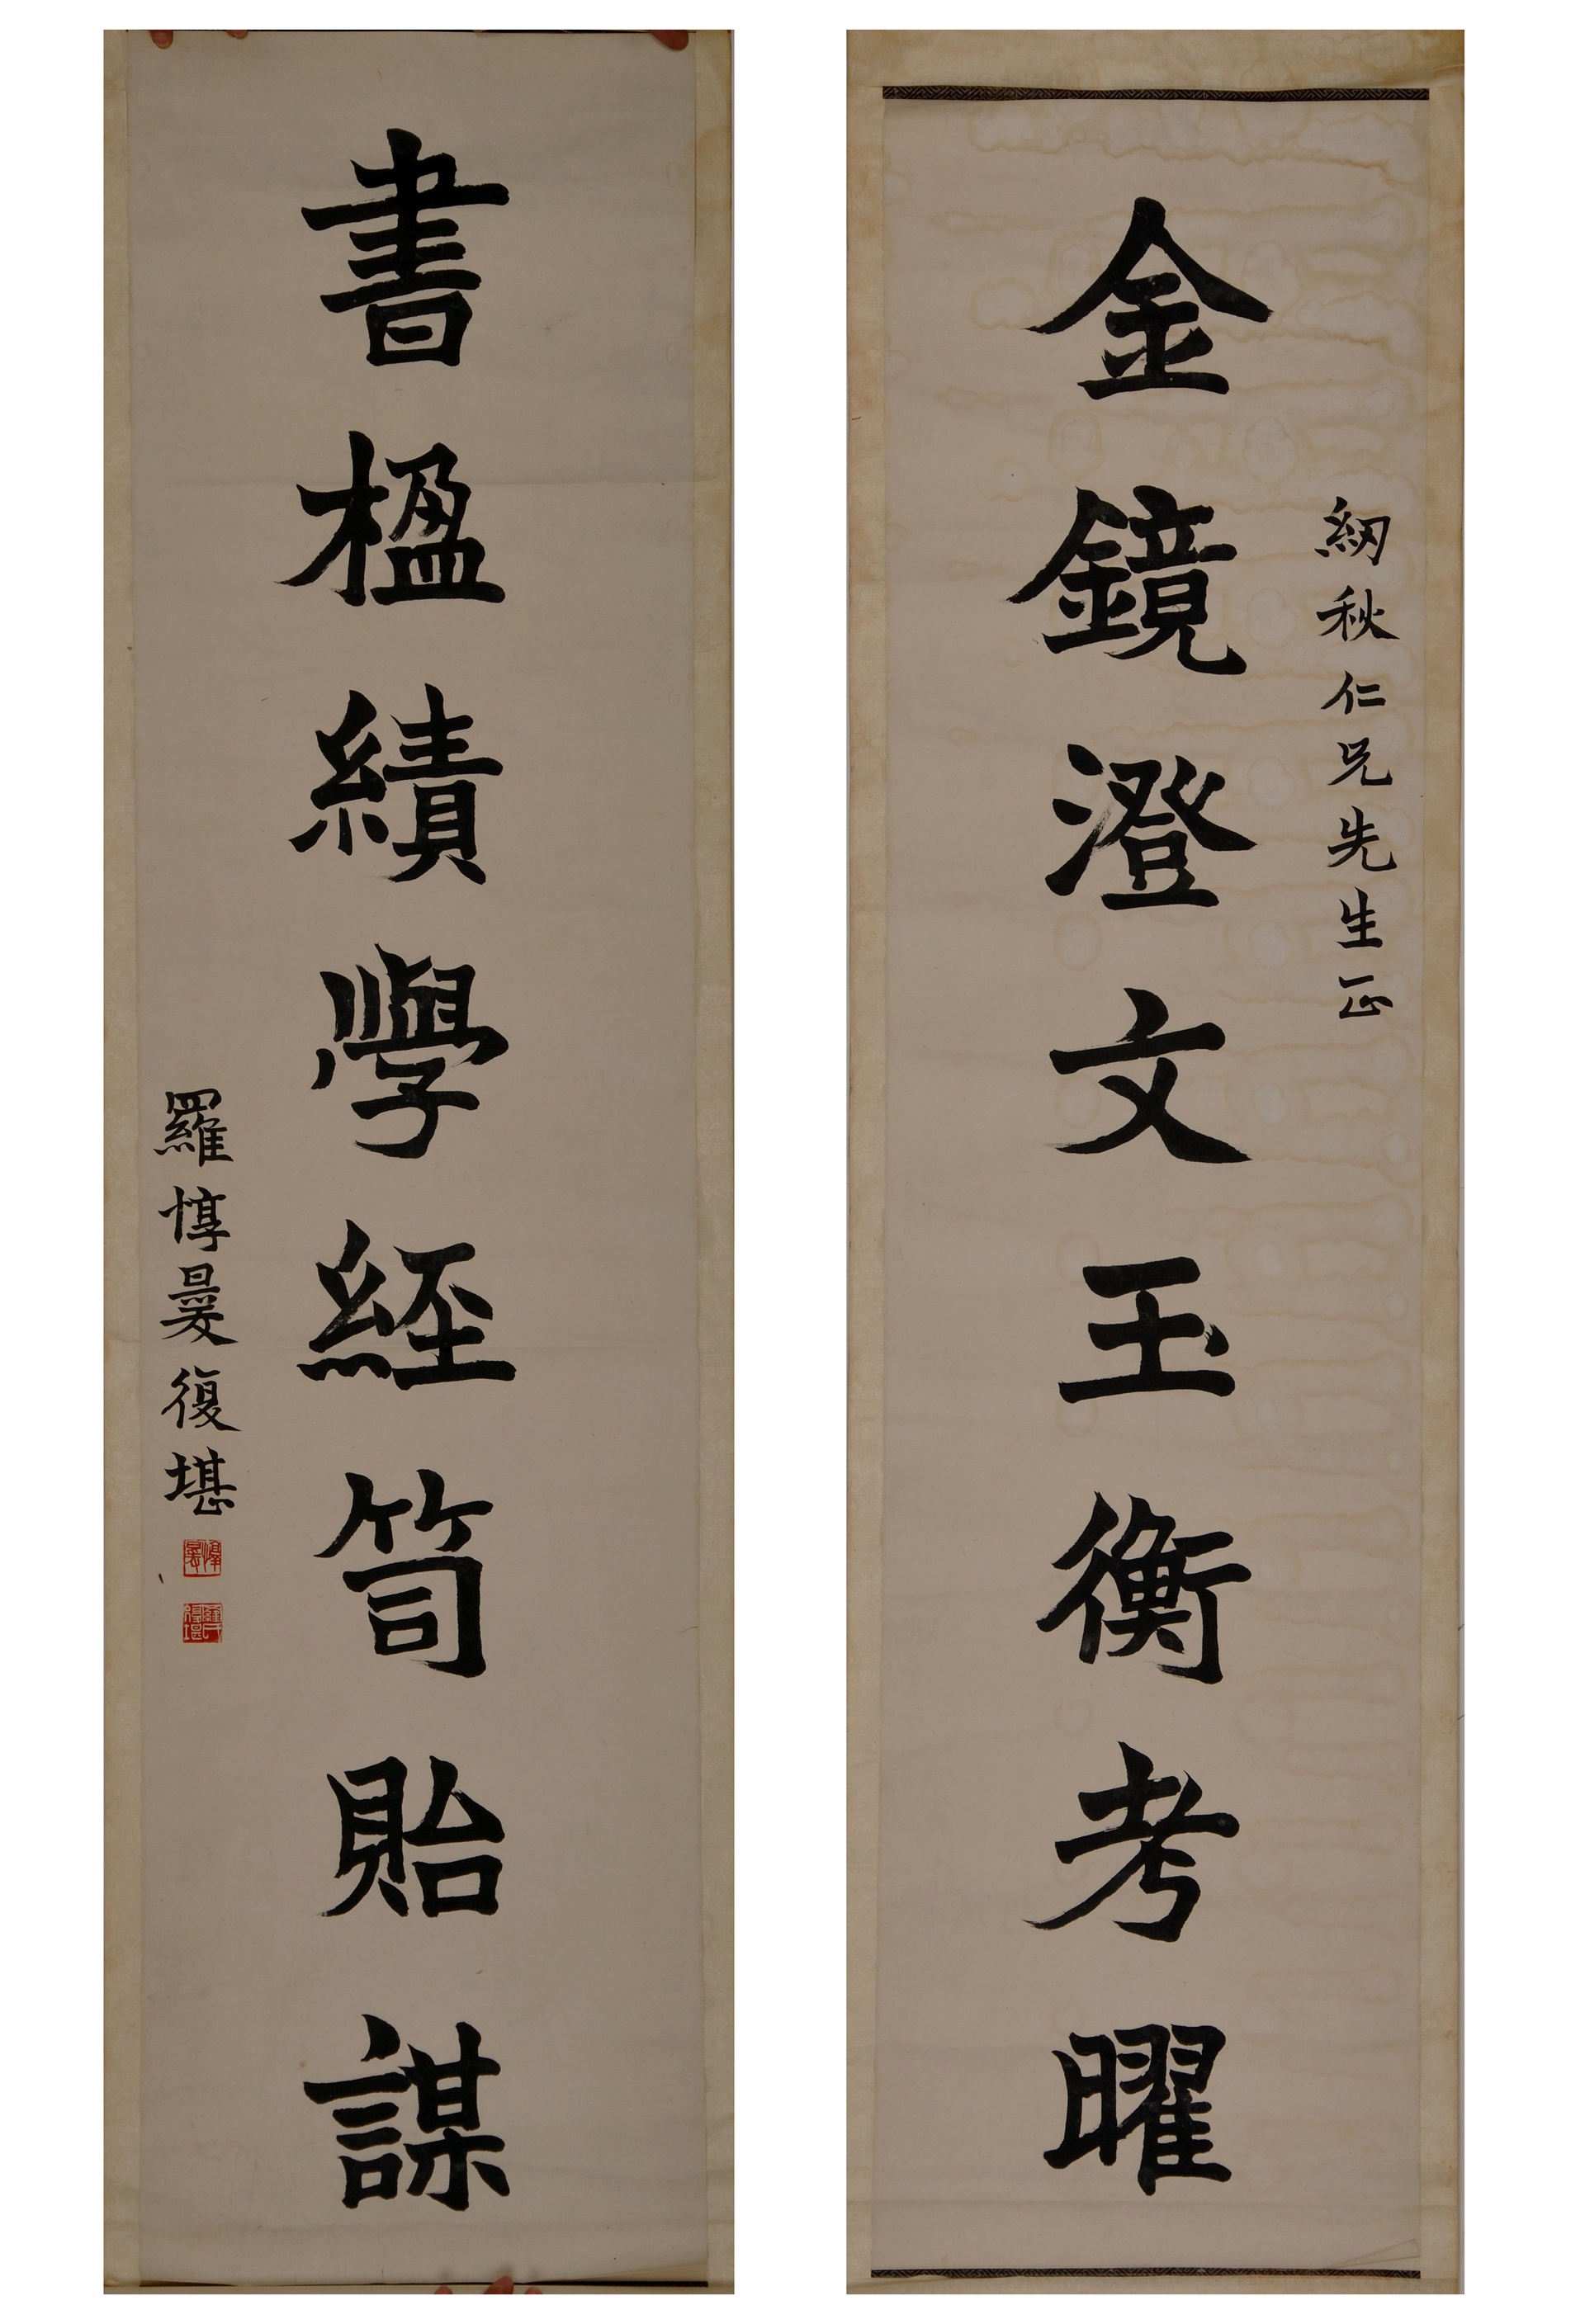 紉秋仁兄先生正
金鏡澄文玉衡考曜
書楹績學經笥貽謀
羅惇㬊復堪